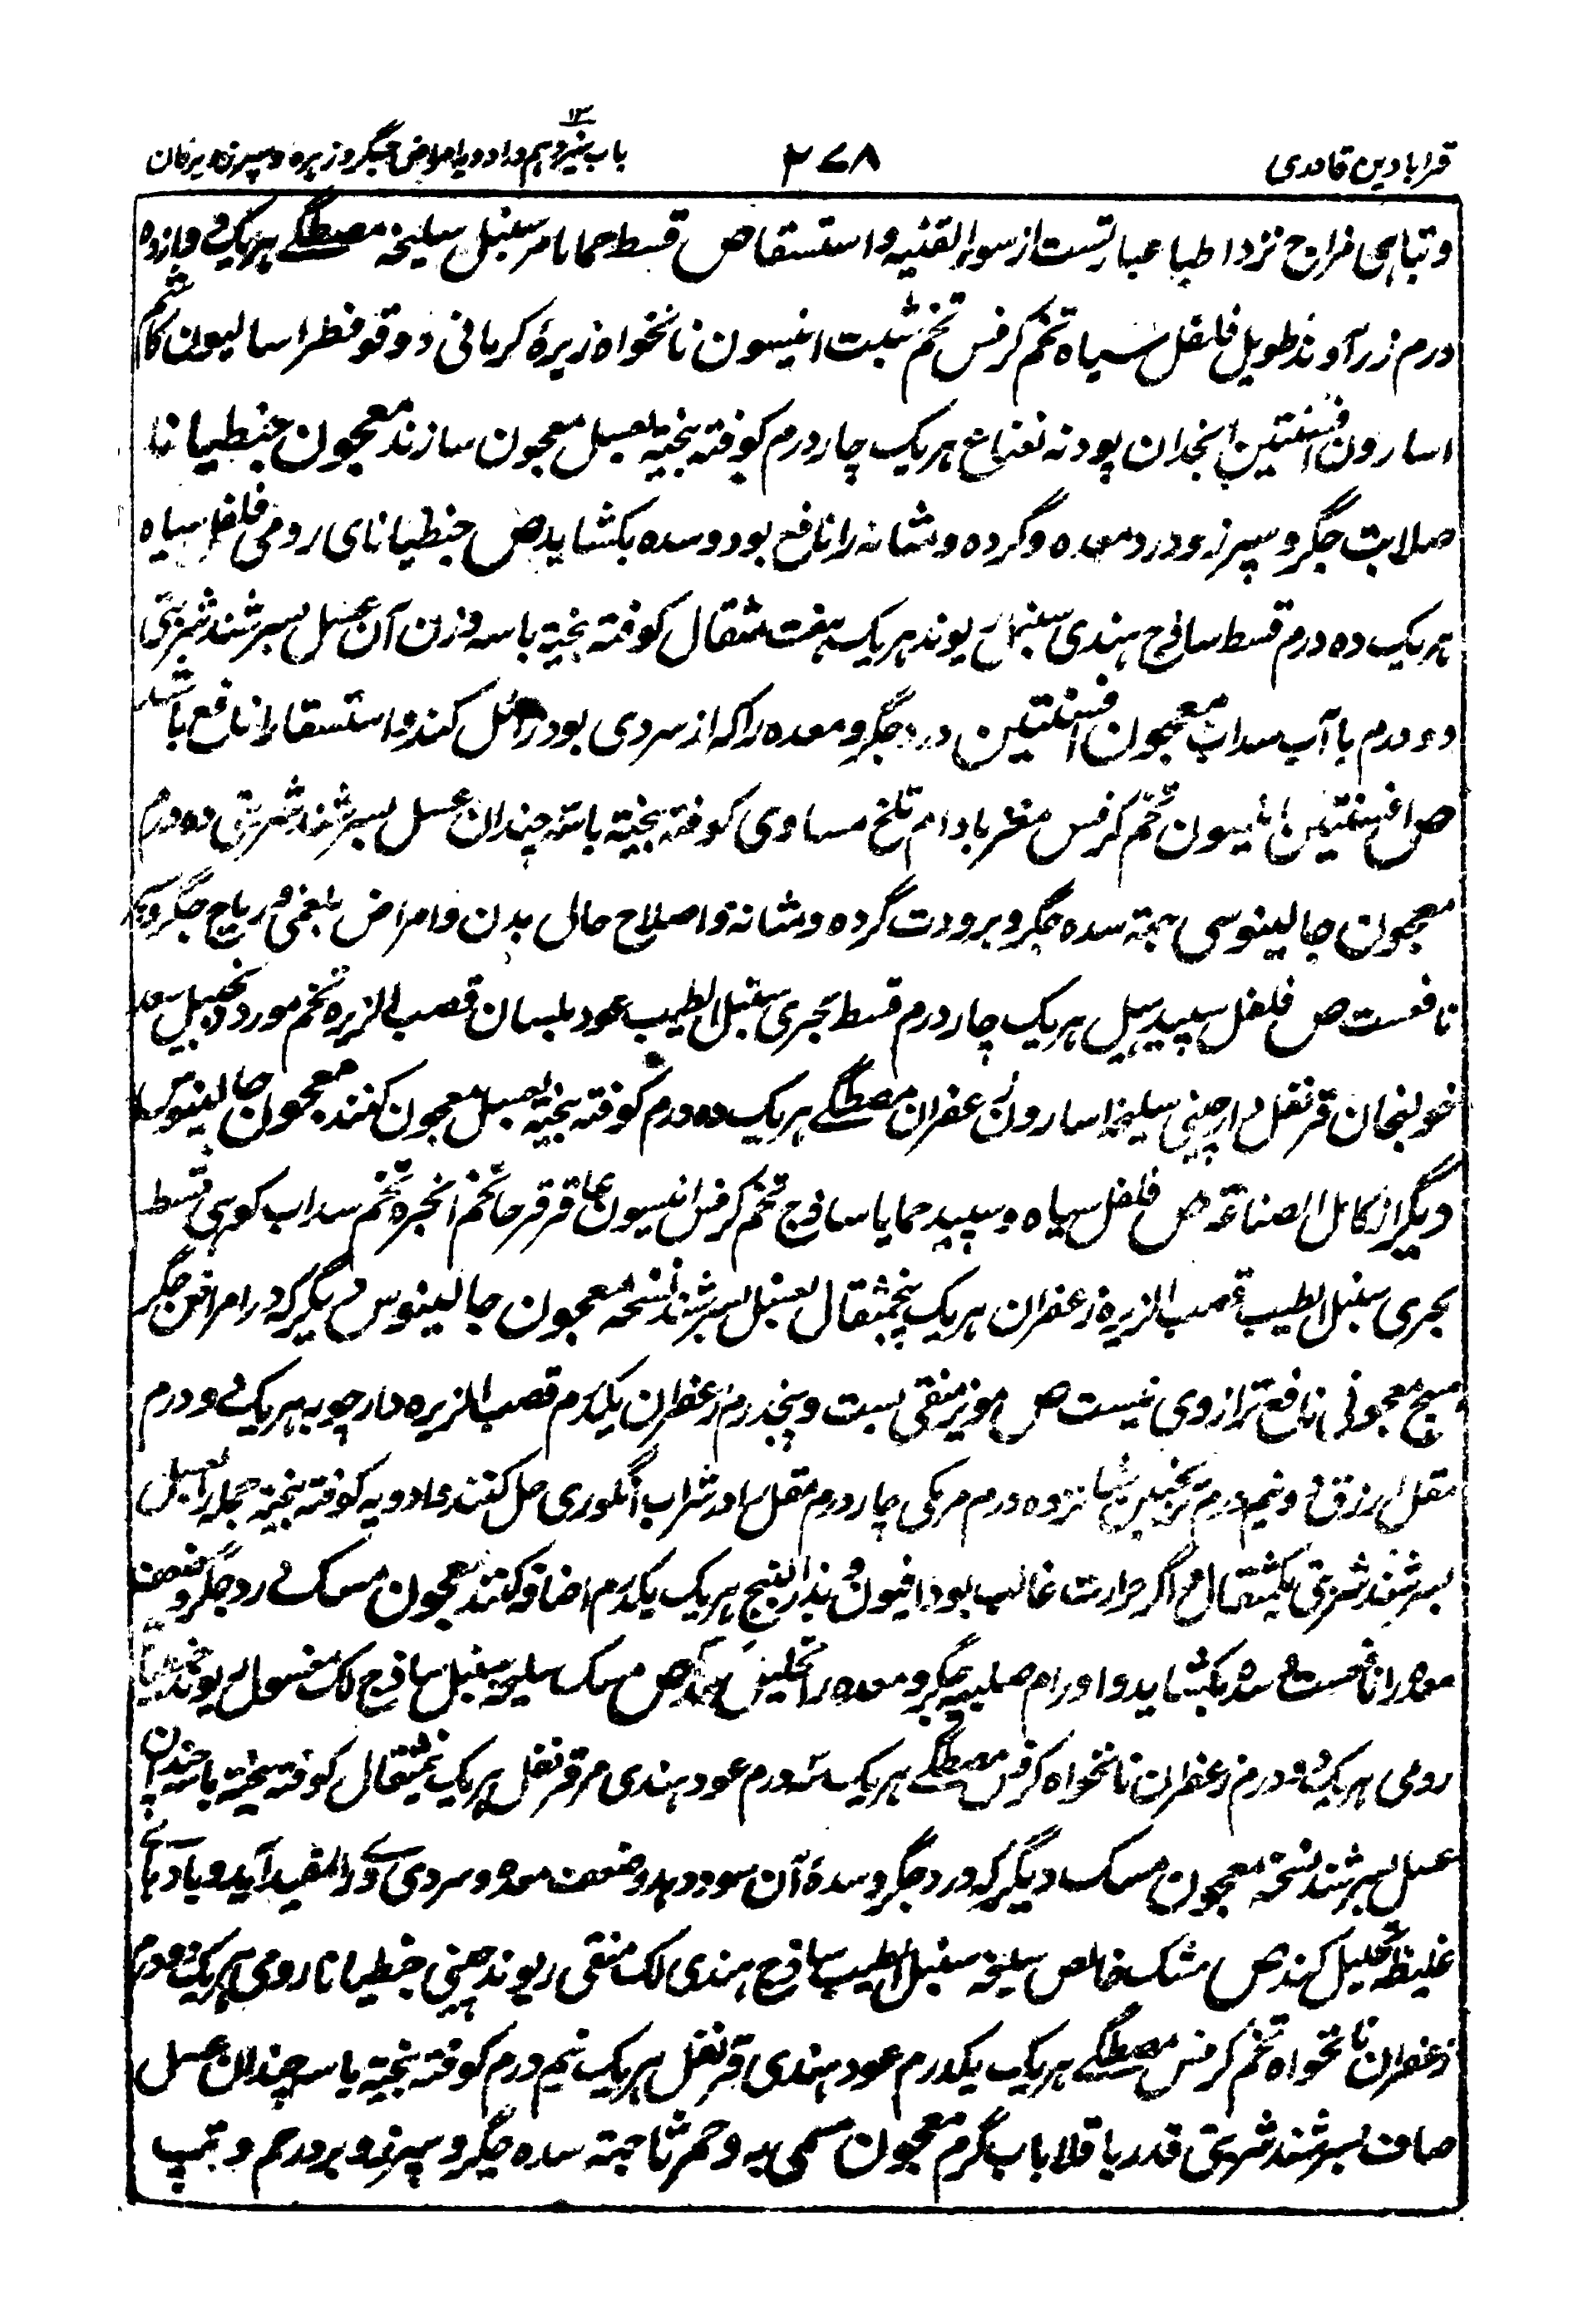 قرابادین قادری
۲۷۸
باب سیزدهم در ادویه امراض جگر و زهره و سپرز و یرقان
۱۳
و تباهی مزاج نزد اطبا عبارتست از سوء القنیه و استسقا ص قسط حماما مر سنبل سلیخه مصطگے هریک دوازده
درم زرآوند طویل فلفل سیاه تخم کرفس تخم شبت انیسون نانخواه زیرهٔ کرمانی دوقو فطراسالیون کاشم
اسارون افسنتین انجدان پودنه نعناع هریک چار درم کوفته بیخته بعسل معجون سازند معجون جنطیانا
صلابت جگر و سپرز و درد معده و گرده و مثانه را نافع بود و سده بکشاید ص جنطیانای رومی فلفل سیاه
هریک ده درم قسط ساذج هندی سنبل ریوند هریک هفت مثقال کوفته بیخته با سه وزن آن عسل بسرشند شربتی
دو درم با آب سداب معجون افسنتین درد جگر و معده را که از سردی بود زائل کند و استسقا را نافع باشد
ص افسنتین انیسون تخم کرفس مغز بادام تلخ مساوی کوفته بیخته با سه چندان عسل بسرشند شربتی ده درم
معجون جالینوسی بجهته سده جگر و برودت گرده و مثانه و اصلاح حال بدن و امراض بلغمی و ریاح جگر و
نافعست ص فلفل سپید هیل هریک چار درم قسط بحری سنبل الطیب عود بلسان قصب الزریره تخم مورد زنجبیل سعد
خولنجان قرنفل دارچینی سلیخه اسارون زعفران مصطگے هریک ده درم کوفته بیخته بعسل معجون کنند معجون جالینوس
دیگر از کامل الصناعه ص فلفل سیاه و سپید حماما ساذج تخم کرفس انیسون عاقرقرحا تخم انجره تخم سداب کوهی قسط
بحری سنبل الطیب قصب الزریره زعفران هریک پنجمثقال بعسل بسرشند نسخه معجون جالینوس دیگر که در امراض جگر
هیچ معجونی نافع تر ازوی نیست ص مویز منقی بست و پنجدرم زعفران یکدرم قصب الزریره دارچوبه هریک دو درم
مقل ازرق دو نیم درم ترنجبین شانزده درم مر مکی چار درم مقل را در شراب انگوری حل کنند و ادویه کوفته بیخته جمله را بعسل
بسرشند شربتی یکمثقال و اگر حرارت غالب بود افیون و بذرالبنج هریک یکدرم اضافه کنند معجون مسک درد جگر و ضعف
معده را نافعست و سده بکشاید و اورام صلبیه جگر و معده را تحلیل کند ص مسک سلیخه سنبل ساذج لک مغسول ریوند جنطیانا
رومی هریک دو درم زعفران نانخواه کرفس مصطگے هریک سه درم عود هندی مر قرنفل هریک نیمثقال کوفته بیخته با سه چندان
عسل بسرشند نسخه معجون مسک دیگر که درد جگر و سدهٔ آن سود دهد و ضعف معده و سردی ویرا مفید آید و بادهای
غلیظ تحلیل کند ص مشک خالص سلیخه سنبل الطیب ساذج هندی لک منقی ریوند چینی جنطیانا رومی هریک دو درم
زعفران نانخواه تخم کرفس مصطگے هریک یکدرم عود هندی قرنفل هریک نیم درم کوفته بیخته با سه چندان عسل
صاف بسرشند شربتی قدر باقلا باب گرم معجون مسمی به دحمرثا جهته سده جگر و سپرز و برد رحم و تپ